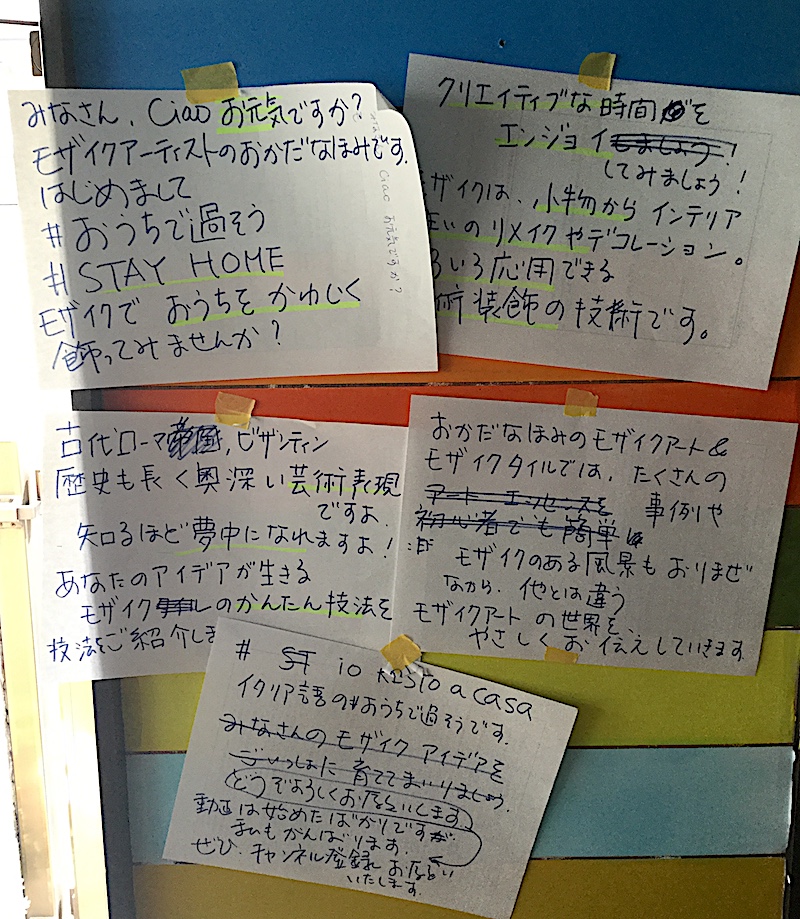 みなさん、Ciao お元気ですか?
モザイクアーティストのおかだなほみです。
はじめまして
#おうちで過そう
#STAY HOME
モザイクで おうちを かわいく
飾ってみませんか?
Ciao お元気ですか?
クリエイティブな時間を
エンジョイしましょう!
してみましょう!
ザイクは、小物から インテリア
いのリメイクやデコレーション。
ろいろ応用できる
術装飾の技術です。
古代ローマ帝国、ビザンティン
歴史も長く奥深い芸術表現
ですよ。
知るほど夢中になれますよ!
あなたのアイデアが生きる
モザイクのかんたん技法を
技法をご紹介しま
おかだなほみのモザイクアート&
モザイクタイルでは、たくさんの
アート エッセンスを 事例や
初心者でも簡単に
モザイクのある風景も おりまぜ
ながら、他とは違う
モザイクアートの世界を、
やさしくお伝えしていきます
# ST io RESTO a casa
イタリア語の#おうちで過そうです。
みなさんのモザイク アイデアを
ごいっしょに 育ててまいりましょう。
どうぞよろしくお願いします
動画は始めたばかりですが、
まいもがんばります。
ぜひ、チャンネル登録 お願い
いたします。